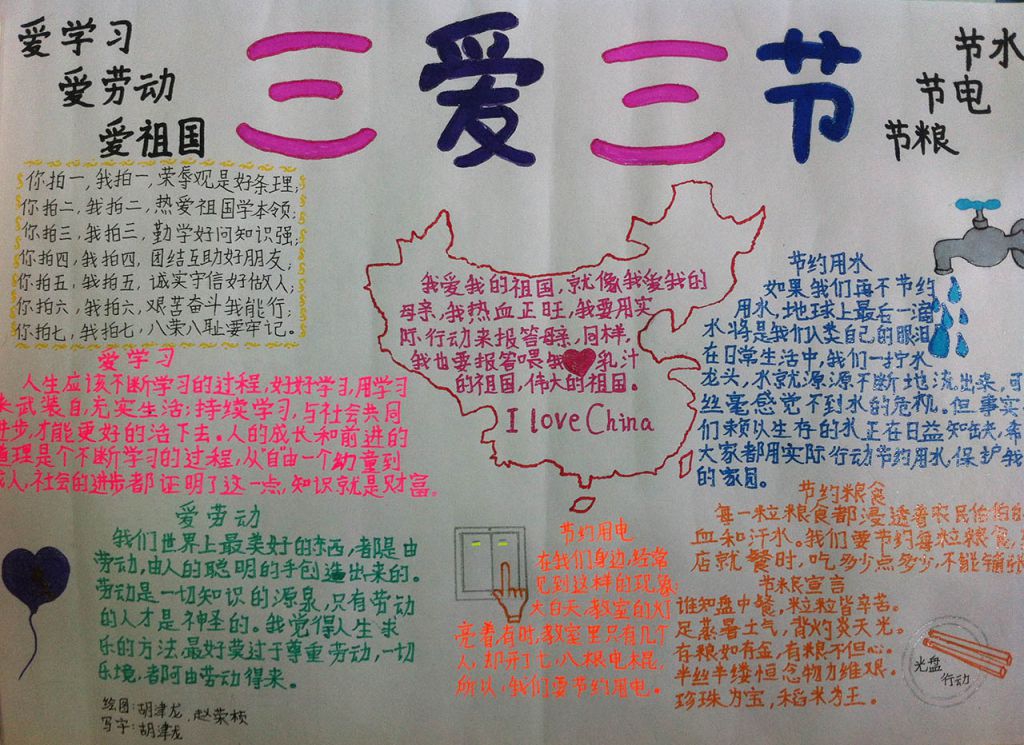 三爱三节
爱学习
爱劳动
爱祖国
节水
节电
节粮
你拍一,我拍一,荣辱观是好条理;
你拍二,我拍二,热爱祖国学本领;
你拍三,我拍三,勤学好问知识强;
你拍四,我拍四,团结互助好朋友;
你拍五,我拍五,诚实守信好做人;
你拍六,我拍六,艰苦奋斗我能行;
你拍七,我拍七,八荣八耻要牢记。
爱学习
人生应该不断学习的过程,好好学习,用学习
来武装自,充实生活;持续学习,与社会共同
进步,才能更好的活下去。人的成长和前进的
道理是个不断学习的过程,从"自"由一个幼童到
成人,社会的进步都证明了这一点,知识就是财富。
我爱我的祖国,就像我爱我的
母亲,我热血正旺,我要用实
际行动来报答母亲,同样,
我也要报答喂我乳汁
的祖国,伟大的祖国。
I love China
节约用水
如果我们再不节约
用水,地球上最后一滴
水将是我们人类自己的眼泪
在日常生活中,我们一拧水
龙头,水就源源不断地流出来,可
丝毫感觉不到水的危机。但事实
们赖以生存的水正在日益短缺,希
大家都用实际行动节约用水,保护我
的家园。
爱劳动
我们世界上最美好的东西,都是由
劳动,由人的聪明的手创造出来的。
劳动是一切知识的源泉,只有劳动
的人才是神圣的。我觉得人生求
乐的方法,最好莫过于尊重劳动,一切
乐境,都可由劳动得来。
节约用电
在我们身边,经常
见到这样的现象:
大白天,教室的灯
亮着,有时,教室里只有几个
人,却开了七、八根电棍,
所以,我们要节约用电。
节约粮食
每一粒粮食都浸透着农民伯伯的
血和汗水。我们要节约每粒粮食,
店就餐时,吃多少点多少,不能铺张
节粮宣言
谁知盘中餐,粒粒皆辛苦。
足蒸暑土气,背灼炎天光。
存粮如存金,有粮不但心。
半丝半缕恒念物力维艰。
珍珠为宝,稻米为王。
光盘
行动
绘图:胡津龙、赵荣桢
写字:胡津龙